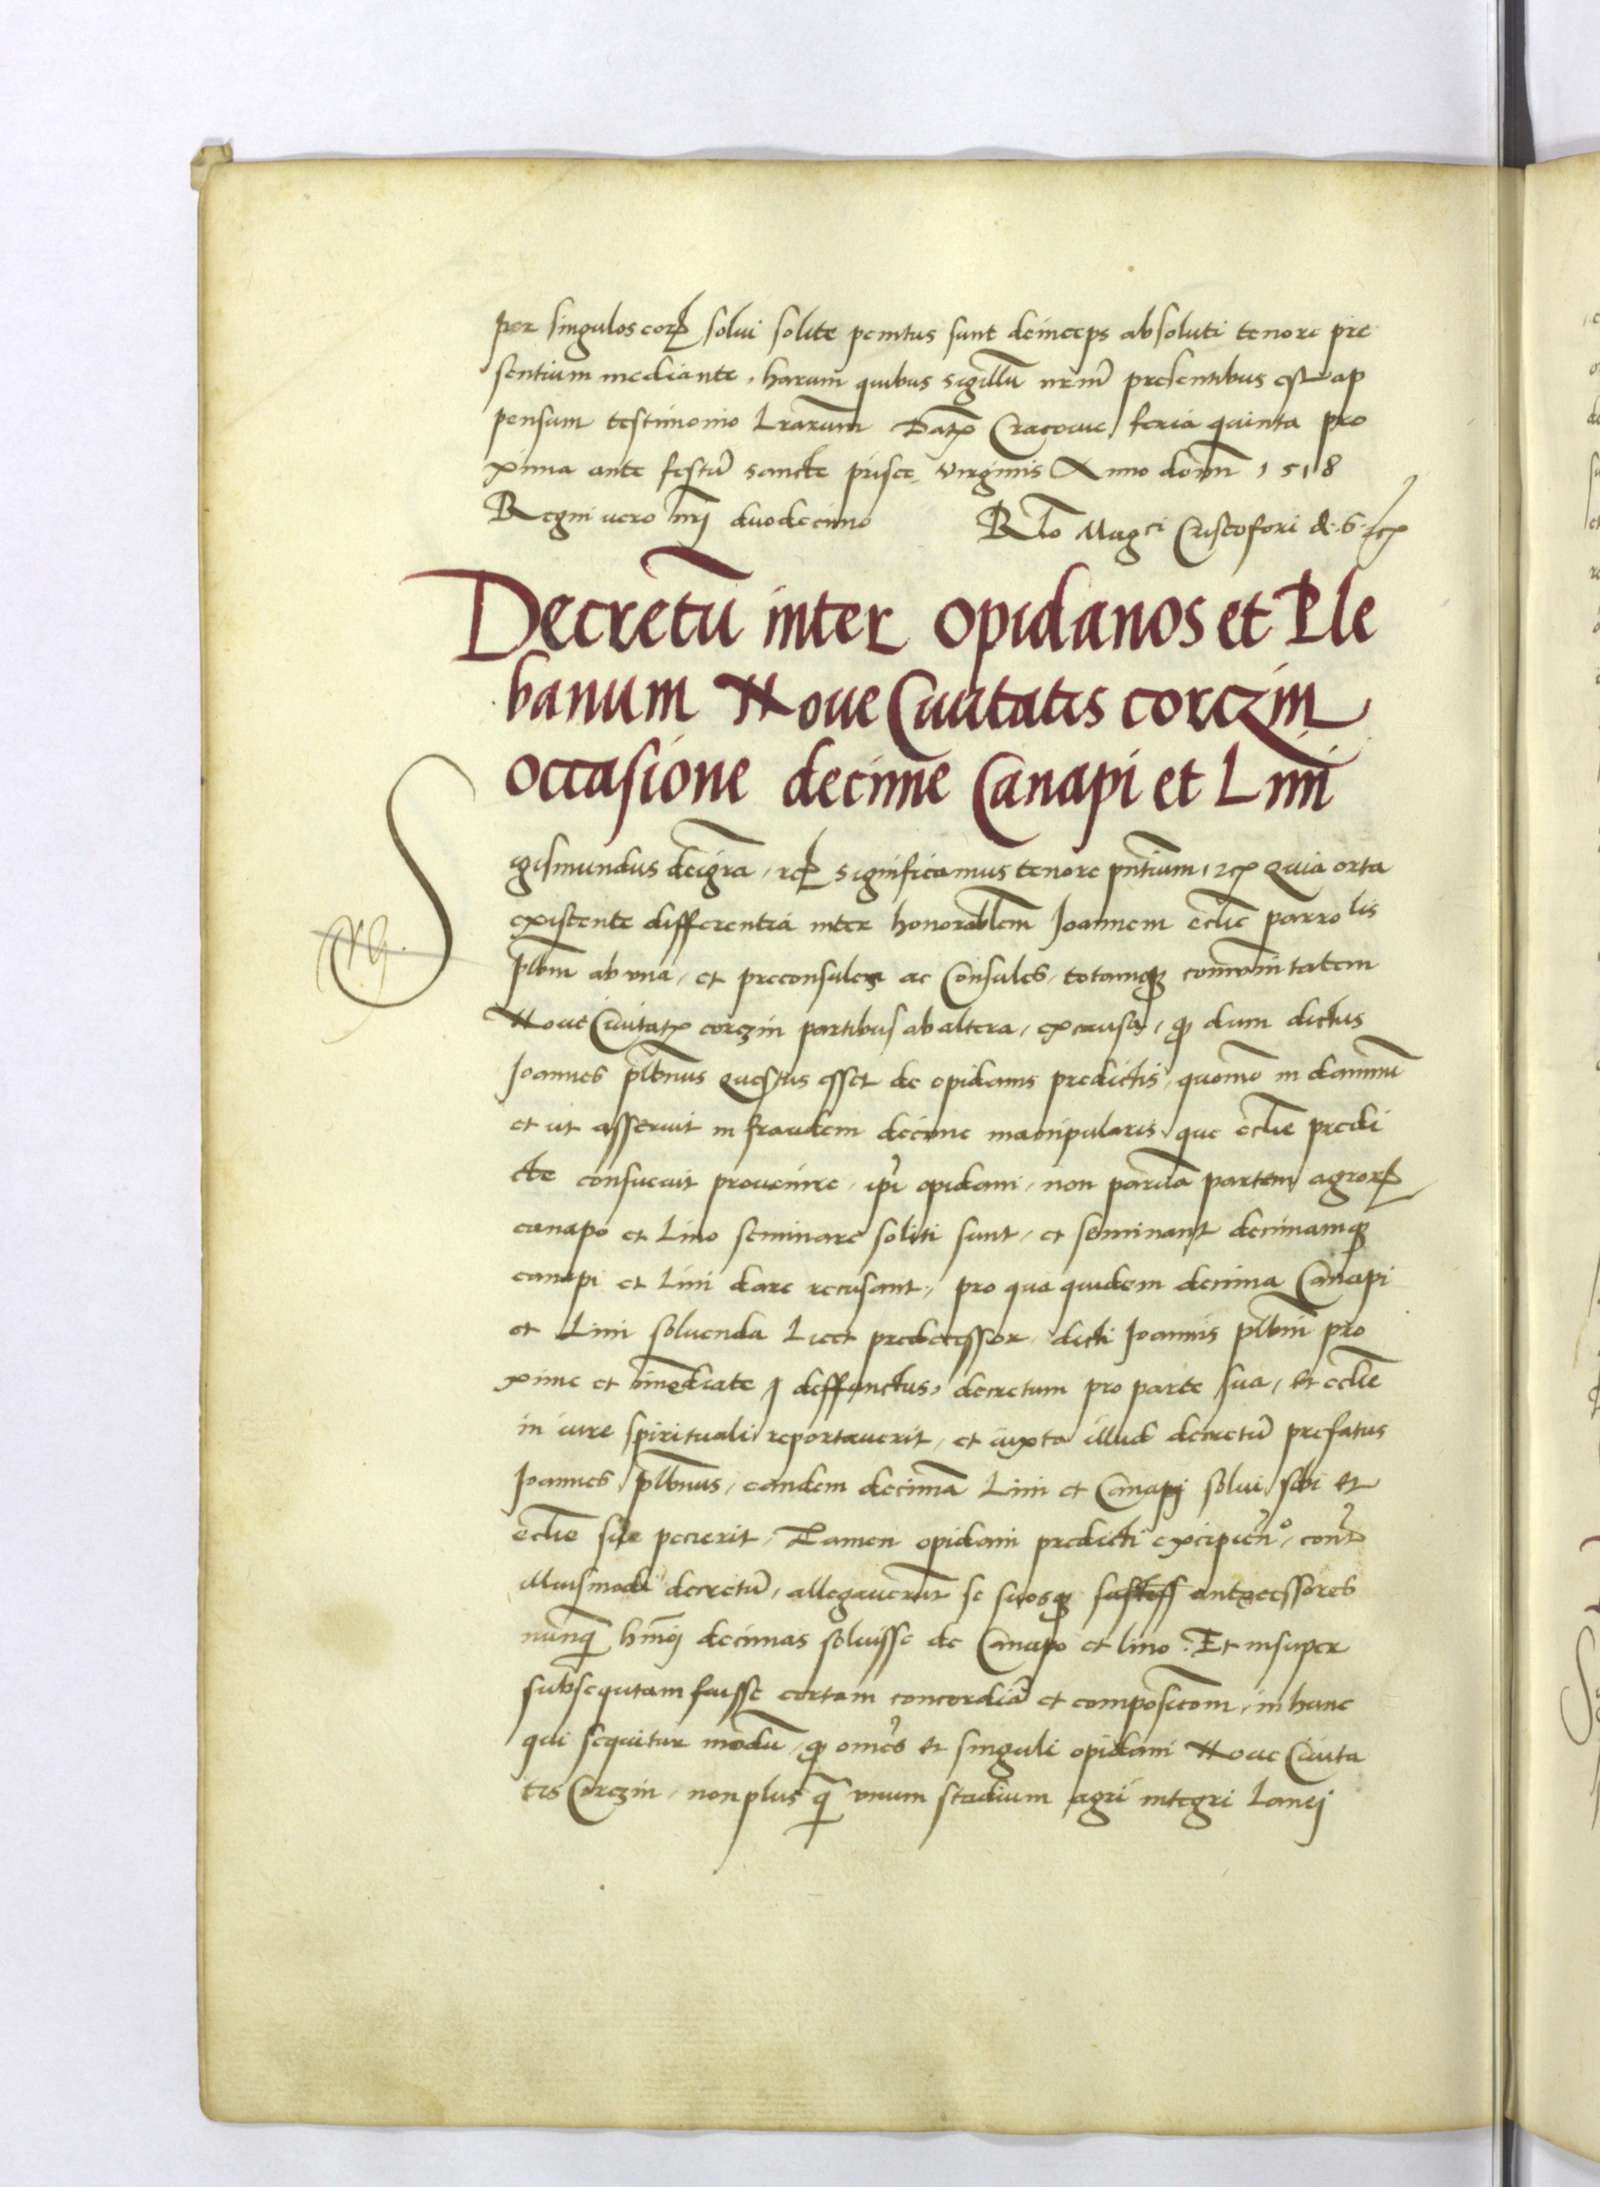 per singulos eorum solui solite penitus sunt deinceps absoluti tenore pre
sentium mediante, harum quibus sigillu nrm̄ presentibus est ap
pensum testimonio Lrarum Datꝫ Cracovie, feria quinta pro
xima ante festu sancte prisce virginis Anno domi 1518
Regni vero nrj duodecimo Rlo Magci Cristofori de S. etc
Decretū inter opidanos et Ple
banum Noue Ciuitatis corczin
occasione decime Canapi et Lini
Sigismundus deigra, rex significamus tenore pntium, etc Quia orta
existente differentia inter honorablem Joannem eclie parrolis
plbm ab vna, et preconsules ac Consules, totamqꝫ comunitatem
Noue Ciuitatꝫ corczin partibus ab altera, ex causa, qꝫ dum dictus
Joannes plbnus questus esset de opidanis predictis, quomo in damnu
et ut asseruit in fraudem decime manipularis, que eclie predi
cte consueuit prouenire, ipi opidani, non parua partem agrorum
canapo et Lino seminare soliti sunt, et seminant decimamqꝫ
canapi et Lini dare recusant, pro qua quidem decima Canapi
et Lini soluenda Licet predecessor, dicti Joannis plbni pro
xime et imediate deffunctus, decretum pro parte sua, et eclie
in iure spirituali reportauerit, et iuxta illud decretu prefatus
Joannes plbnus, eandem decima Lini et Canapj solui sibi et
eclie sue pecierit, Tamen opidani predicti excipien̄o, cont
illiusmodi decretu, allegauerut se suosqꝫ antecessores
nunqꝫ hmoj decimas soluisse de Canapo et lino. Et insuper
subsequtam fuisse certam concordia et compositom, in hunc
qui sequitur modu, qꝫ omes et singuli opidani Noue Ciuita
tis Corczin, non plus qꝫ vnum stadium agri integri Lanej